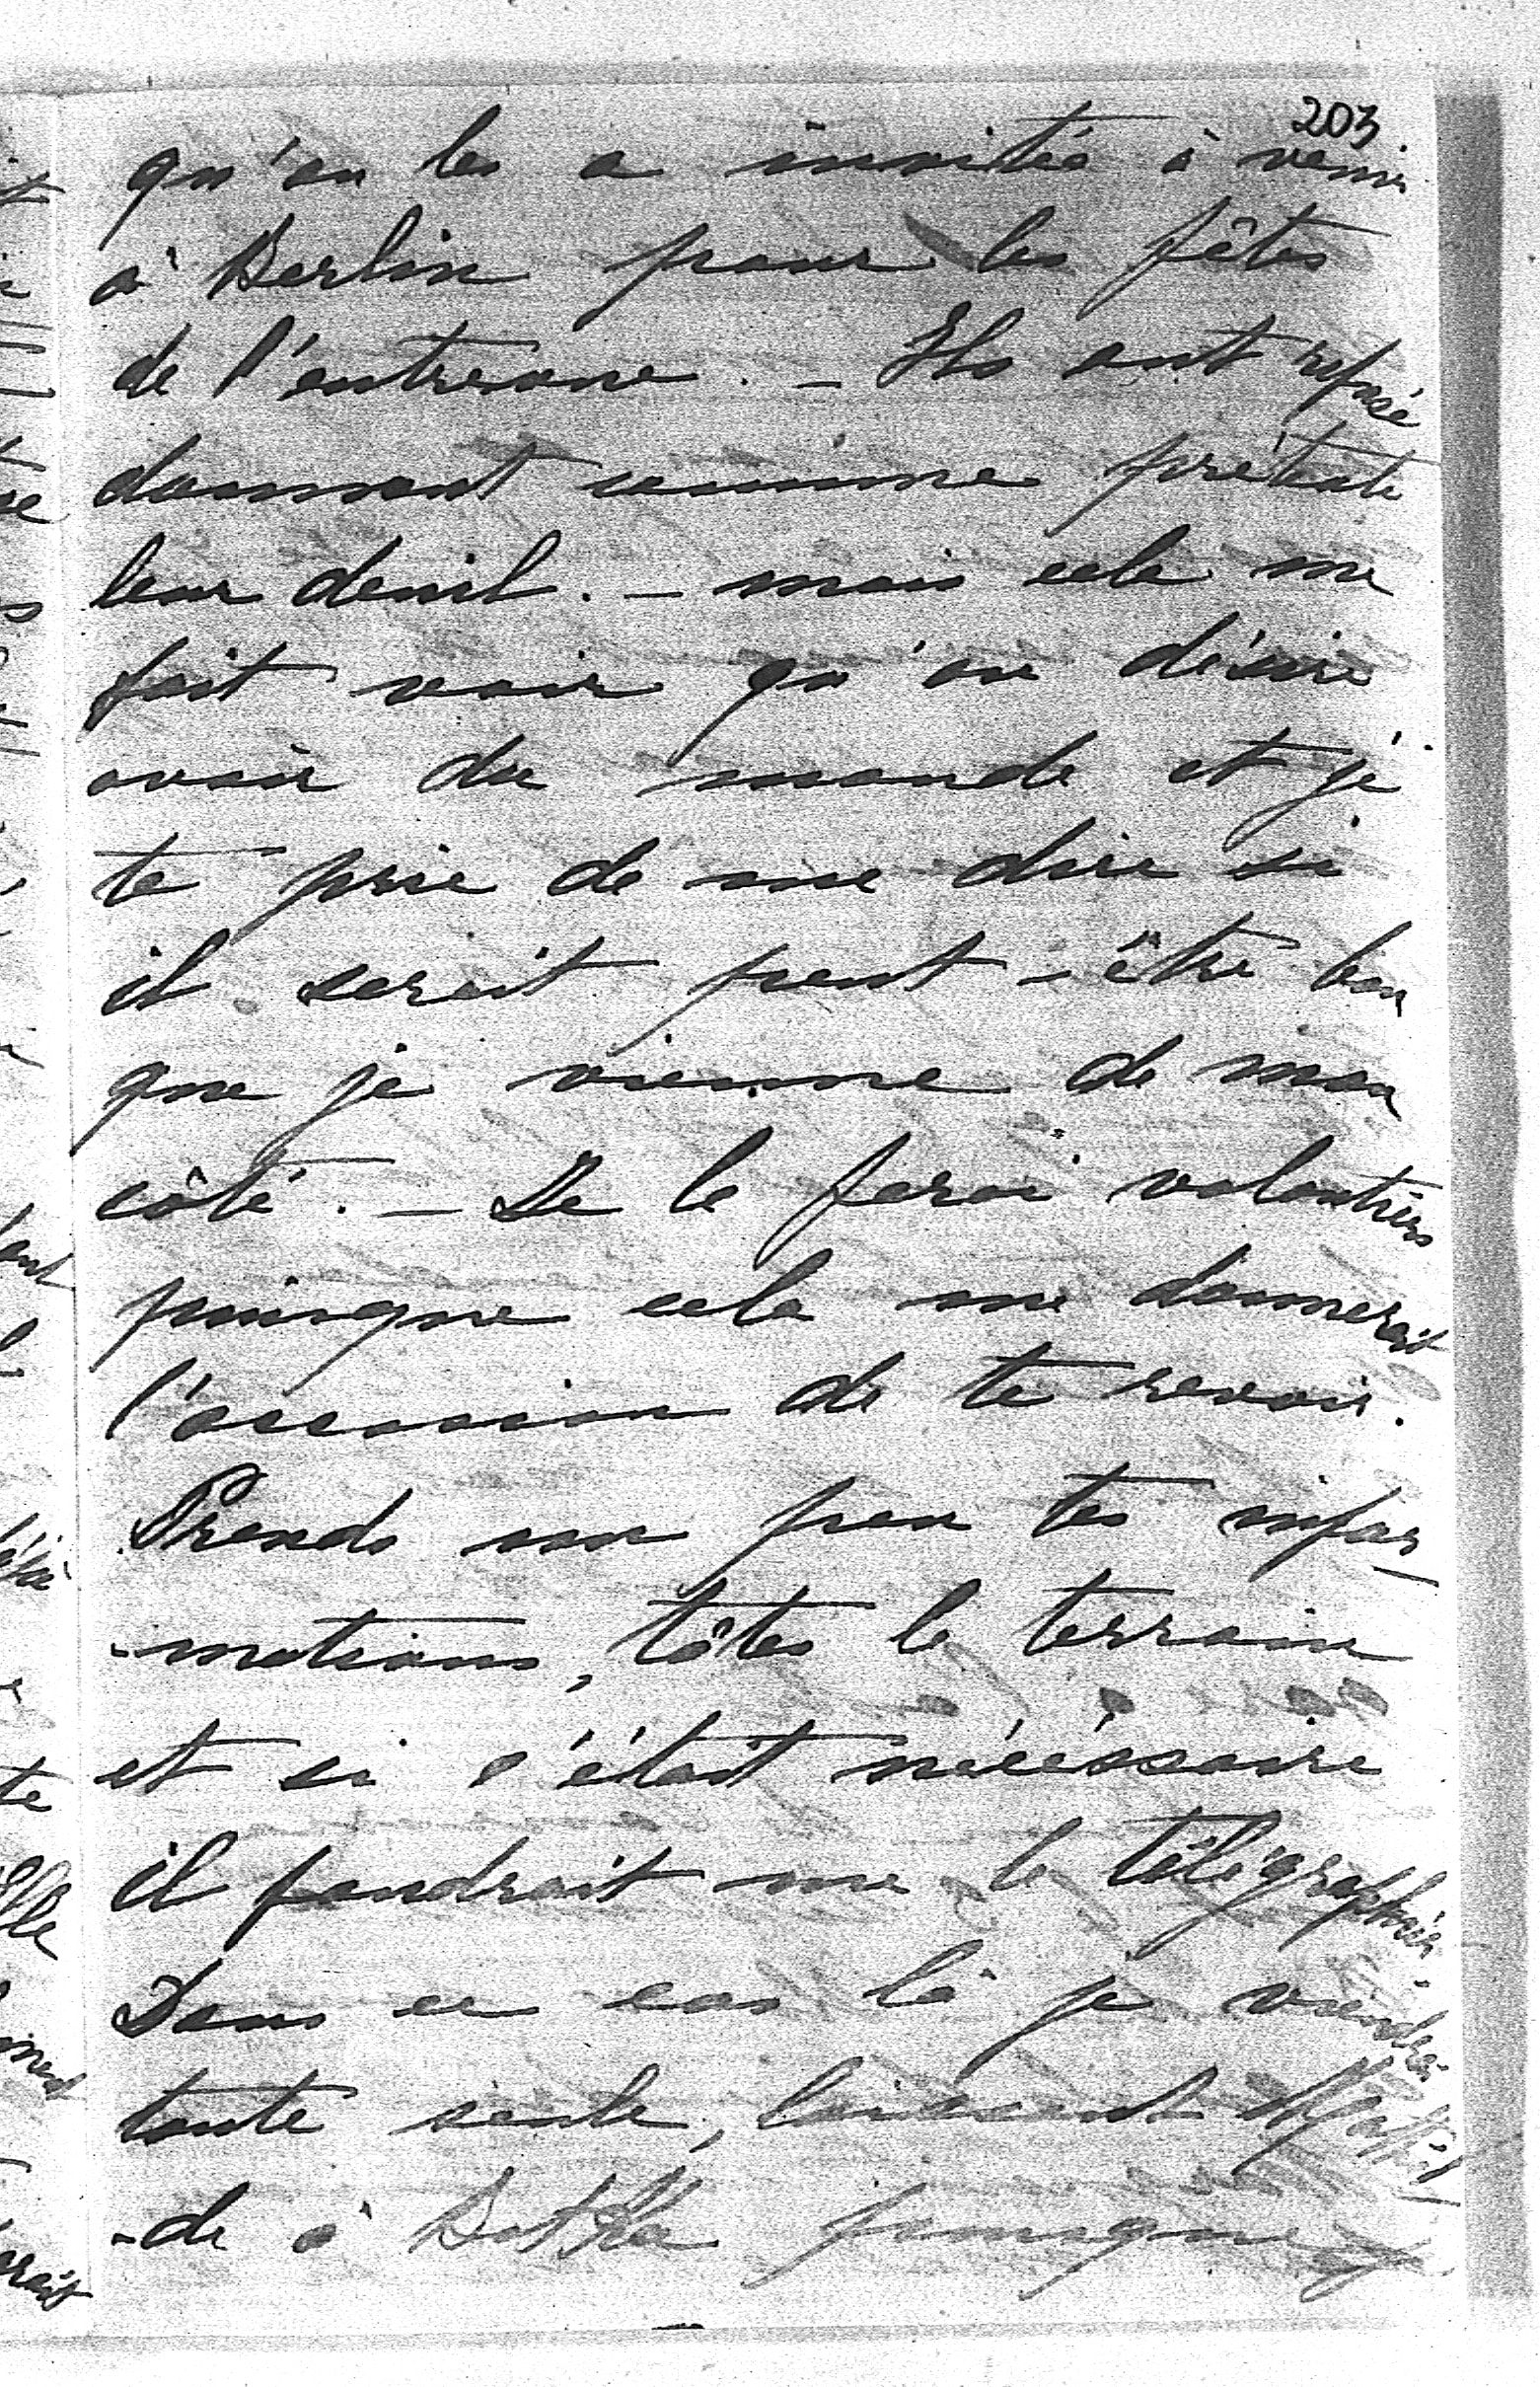 203
qu'on les a invités à venir
à Berlin pour les fêtes
de l'entrevue. – Ils ont refusé
donnant comme prétexte
leur deuil. – mais cela me
fait voir qu'on désire
avoir du monde et je
te prie de me dire si
il serait peut-être bon
que je vienne de mon
côté. – Je le ferai volontiers
puisque cela me donnerait
l'occasion de te revoir.
Prends un peu tes infor-
-mations, tâtes le terrain
et si c'était nécéssaire
il faudrait me le télégraphier
Dans ce cas là je viendrai
toute seule, laissant Mathil-
-de à puisque